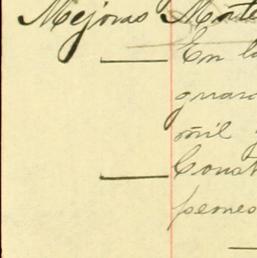 Mejoras Monte
En la
guard
mil
Const
peones